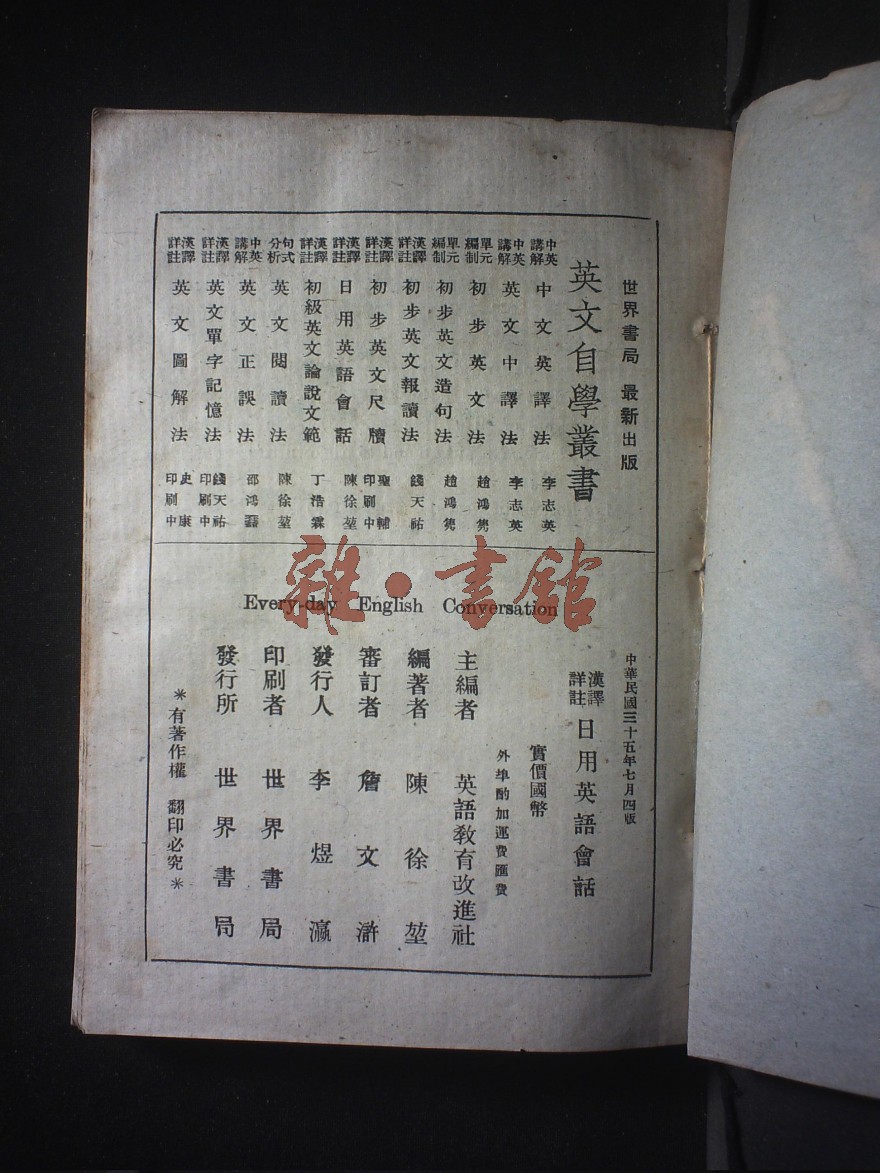 世界書局 最新出版
英文自學叢書
中英講解 中文英譯法 李志英
中英講解 英文中譯法 李志英
單元編制 初步英文法 趙鴻雋
單元編制 初步英文造句法 趙鴻雋
漢譯詳註 初步英文報讀法 錢天祐
漢譯詳註 初步英文尺牘 聖輔 印刷中
漢譯詳註 日用英語會話 陳徐堃
漢譯詳註 初級英文論說文範 丁浩霖
句式分析 英文閱讀法 陳徐堃
中英講解 英文正誤法 邵鴻馫
漢譯詳註 英文單字記憶法 錢天祐 印刷中
漢譯詳註 英文圖解法 史康 印刷中
雜·書館
Every-day English Conversation
中華民國三十五年七月四版
漢譯詳註 日用英語會話
實價國幣
外埠酌加運費匯費
主編者 英語教育改進社
編著者 陳徐堃
審訂者 詹文滸
發行人 李煜瀛
印刷者 世界書局
發行所 世界書局
＊有著作權 翻印必究＊